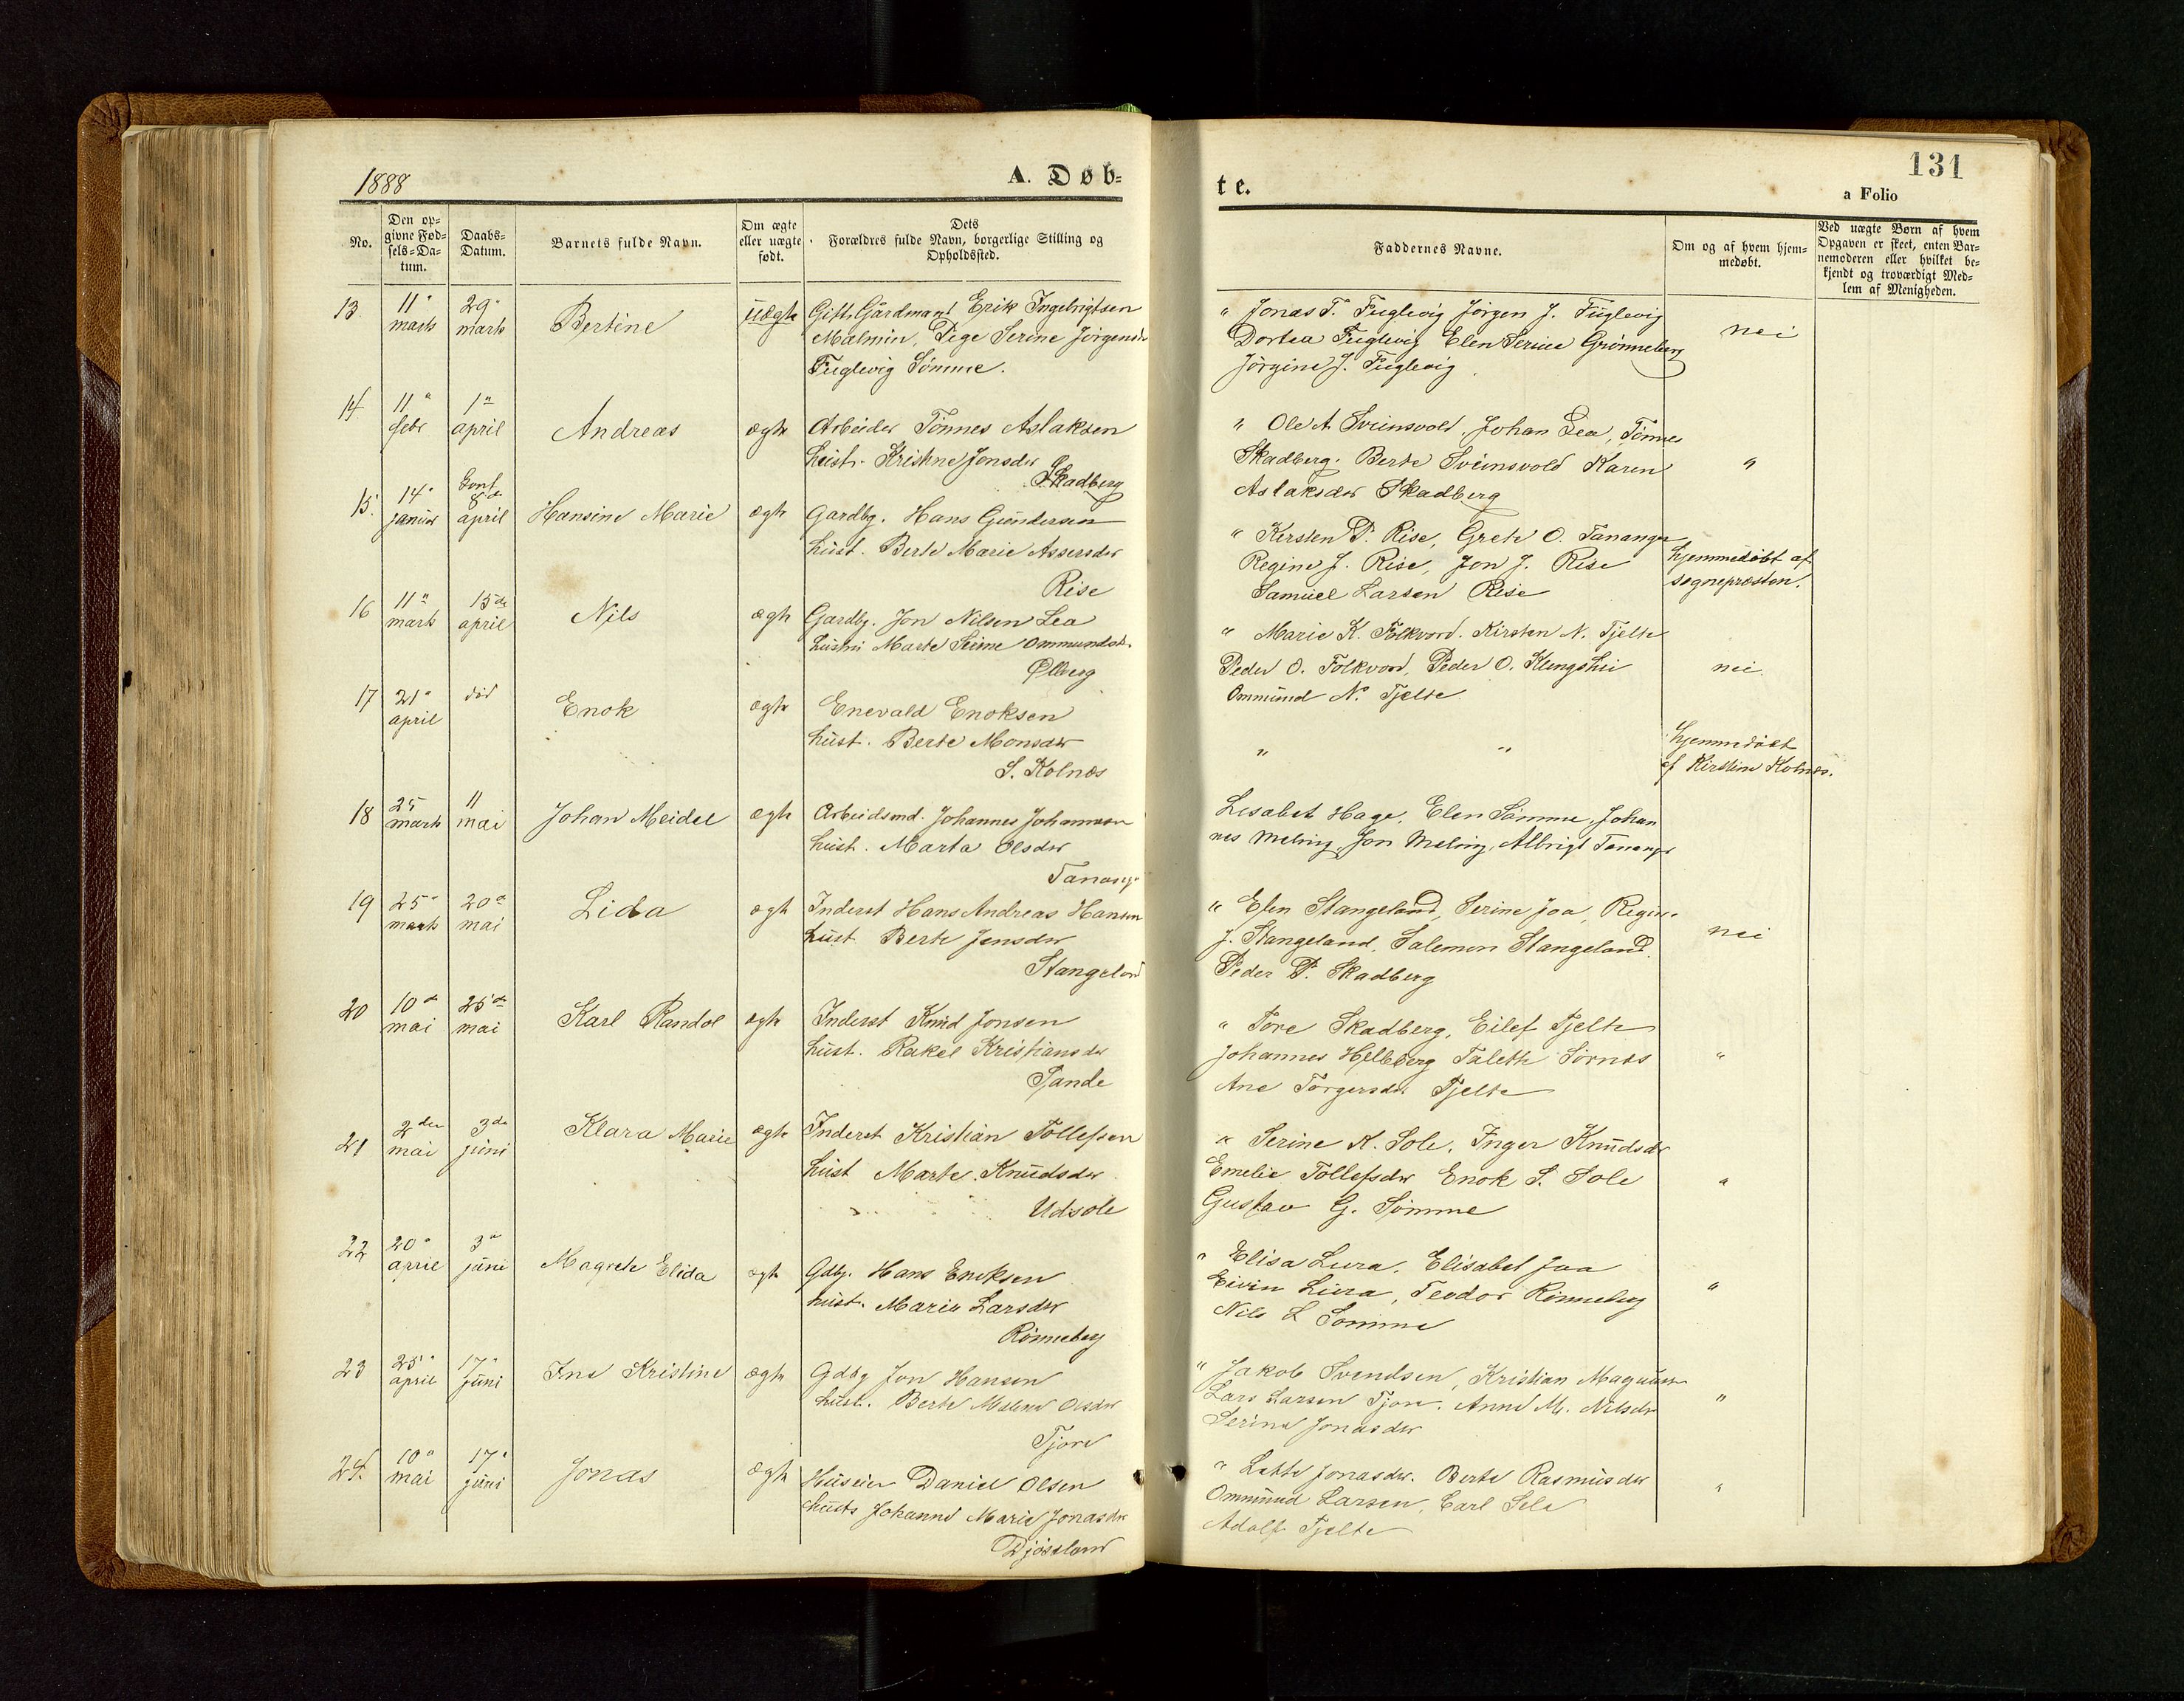 1888
A. Døb-
te.
131
a Folio
No.
Den op-
givne Fød-
sels-Da-
tum.
Daabs-
Datum.
Barnets fulde Navn.
Om ægte
eller uægte
født.
Dets
Forældres fulde Navn, borgerlige Stilling og
Opholdssted.
Faddernes Navne.
Om og af hvem hjem-
medøbt.
Ved uægte Børn af hvem
Opgaven er skeet, enten Bar-
nemoderen eller hvilket be-
kjendt og troværdigt Med-
lem af Menigheden.
13
11"
marts
29"
marts
Bertine
uægte
Gift Gårdmand Erik Ingebrigtsen
Malmin, Pige Serine Jörgensdr
Fuglevig Sömme.
" Jonas T. Fuglevig Jörgen J. Fuglevig
Dortea Fuglevig Elen Serine Grönneberg
Jörgine J. Fuglevig
nei
14
11"
febr
1"
april
Andreas
ægte
Arbeider Tönnes Aslaksen
hust. Kristine Jonsdr
Skadberg
" Ole A Sveinsvold, Johan Lea, Tönnes
Skadberg. Berte Sveinsvold Karen
Aslaksdr Skadberg
"
15
14"
januar
8de
april
Hansine Marie
ægte
Gardbg. Hans Gundersen
hust. Berte Marie Assersdr
Rise
" Kirsten P. Rise, Grete O. Tananger
Regine J. Rise, Jon J. Rise
Samuel Larsen Rise
hjemmedöbt af
sognepresten.
16
11"
marts
15de
april
Nils
ægte
Gardbg. Jon Nilsen Lea
hustru Marte Serine Ommundsdr.
Ölberg
" Marie K. Folkvord. Kirsten N. Tjelte
Peder O. Folkvord, Peder O. Klungshei
Ommund N. Tjelte
nei
17
21"
april
död
Enok
ægte
Enevald Enoksen
hust. Berte Monsdr
S. Kolnes
" "
hjemmedöbt
af Kirstine Kolnes.
18
25
marts
11
mai
Johan Meidel
ægte
Arbeidsmd. Johannes Johannesen
hust. Marta Olsdr
Tananger
Lisabet Hage, Elen Sömme, Johan
nes Meling, Jon Meling, Albrigt Tananger
19
25"
marts
20de
mai
Lida
ægte
Inderst Hans Andreas Hansen
hust Berte Jensdr
Stangeland
" Elen Stangeland, Serine Joa, Regine
J. Stangeland, Salemon Stangeland.
Peder P. Skadberg
nei
20
10de
mai
25de
mai
Karl Randol
ægte
Inderst Knud Jonsen
hust. Rakel Kristiansdr
Sande
" Tore Skadberg, Eilef Tjelte
Johannes Helleberg Talette Sörnes
Ane Torgersdr Tjelte
"
21
2den
mai
3de
juni
Klara Marie
ægte
Inderst Kristian Tollefsen
hust Marte Knudsdr
Udsole
" Serine K. Sole, Inger Knudsdr
Emelie Tollefsdr Enok S. Sole
Gustav G. Sömme
"
22
20"
april
3"
juni
Magrete Elida
ægte
Gdbg. Hans Enoksen
hust. Marie Larsdr
Rönneberg
" Elisa Lura, Elisabet Joa
Eivin Lura, Teodor Rönneberg
Nils L Somme
"
23
25"
april
17"
juni
Ine Kristine
ægte
Gdbg Jon Hansen
hust. Berte Malene Olsdr
Tjore
" Jakob Svendsen, Kristian Magnusen
Lars Larsen Tjore. Anne M. Nilsdr
Serina Jonasdr
"
24.
10"
mai
17"
juni
Jonas
ægte
Huseier Daniel Olsen
hust Johanne Marie Jonasdr
Djösland
" Lette Jonasdr. Berte Rasmusdr
Ommund Larsen, Carl Sele
Adolf Tjelte
"